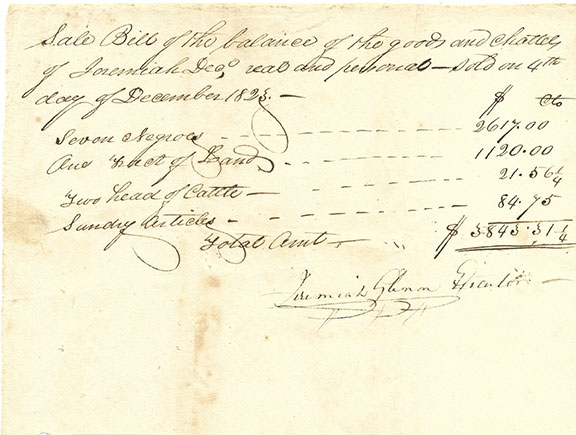 Sale Bill of the balance of the goods and Chattels
of Jeremiah Decd real and personal — sold on 4th
day of December 1823. —
$ Cts
Seven Negroes - - - - - - 2617.00
One Tract of Land - - - - - 1120.00
Two head of Cattle - - - - - 21.56¼
Sundry Articles - - - - - - 84.75
Total Amt - - $ 3843.31¼
Jeremiah Glenon Executor